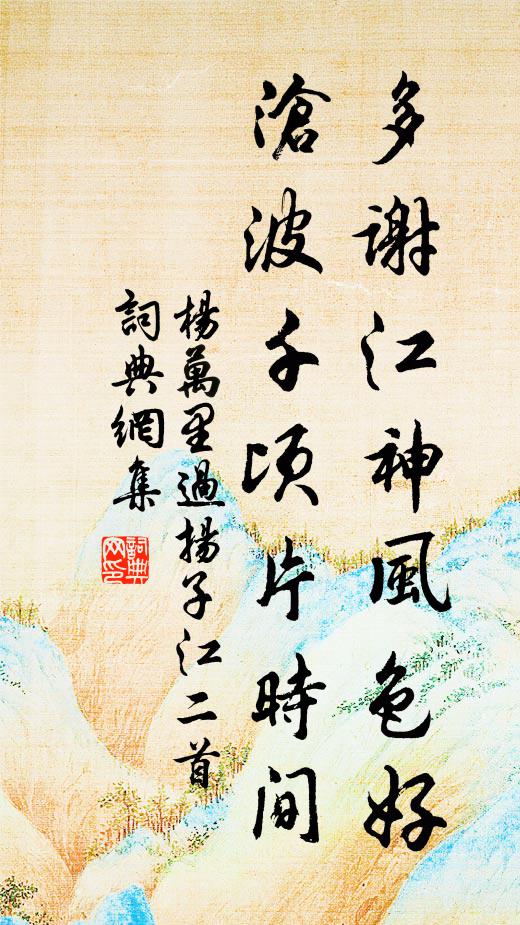 多謝江神風色好
滄波千頃片時間
楊萬里過揚子江二首
詞典網集
詞典
网印